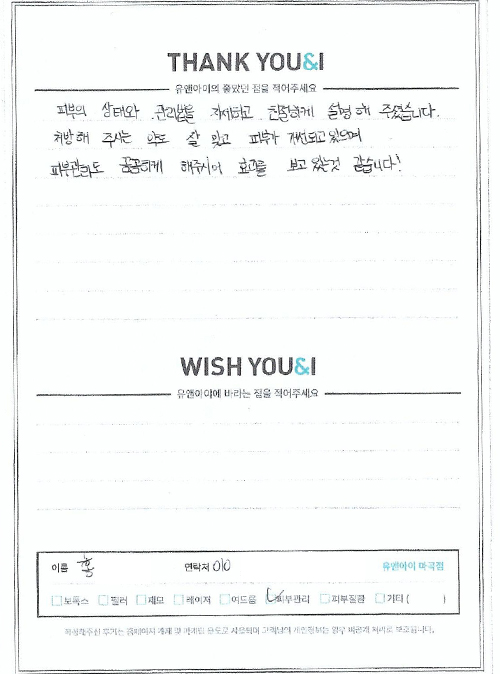 THANK YOU&I
유앤아이의 좋았던 점을 적어주세요
피부의 상태와 관리법을 자세하고 친절하게 설명해 주셨습니다.
처방해 주시는 약도 잘 맞고 피부가 개선되고 있으며
피부관리도 꼼꼼하게 해주시어 효과를 보고 있는것 같습니다!
WISH YOU&I
유앤아이에 바라는 점을 적어주세요
이름 홍 연락처 010 유앤아이 마곡점
보톡스 필러 제모 레이저 여드름 피부관리 피부질환 기타 ( )
작성해주신 후기는 홈페이지 게재 및 마케팅 용도로 사용되며 고객님의 개인정보는 일부 비공개 처리로 보호됩니다.